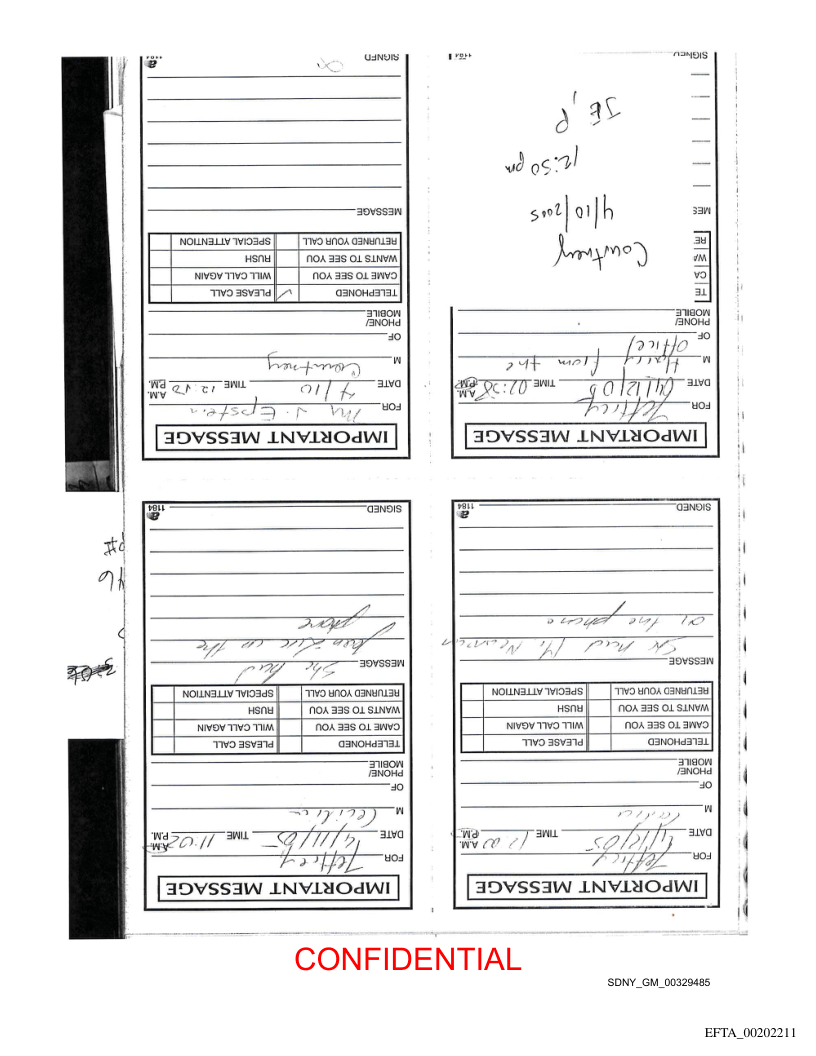 IMPORTANT MESSAGE
FOR Jeffrey
DATE 4/12/05 TIME 12 00 A.M. P.M.
M
OF
PHONE/
MOBILE
TELEPHONED PLEASE CALL
CAME TO SEE YOU WILL CALL AGAIN
WANTS TO SEE YOU RUSH
RETURNED YOUR CALL SPECIAL ATTENTION
MESSAGE
at the phone
SIGNED
1184
IMPORTANT MESSAGE
FOR Jeffrey
DATE 4/11/05 TIME 11:02 A.M. P.M.
M Cecilia
OF
PHONE/
MOBILE
TELEPHONED PLEASE CALL
CAME TO SEE YOU WILL CALL AGAIN
WANTS TO SEE YOU RUSH
RETURNED YOUR CALL SPECIAL ATTENTION
MESSAGE She had
on the
phone
SIGNED
1184
IMPORTANT MESSAGE
FOR Jeffrey
DATE 04/12/05 TIME 02:38 A.M. P.M.
M Harry from the
OF office
PHONE/
MOBILE
TE
CA
WA
RE
MES
Courtney
4/10/2005
12:50 pm
JE, P
SIGNED
1184
IMPORTANT MESSAGE
FOR Mr J. Epstein
DATE 4/10 TIME 12.50 A.M. P.M.
M Courtney
OF
PHONE/
MOBILE
TELEPHONED ✓ PLEASE CALL
CAME TO SEE YOU WILL CALL AGAIN
WANTS TO SEE YOU RUSH
RETURNED YOUR CALL SPECIAL ATTENTION
MESSAGE
SIGNED
1184
CONFIDENTIAL
SDNY_GM_00329485
EFTA_00202211